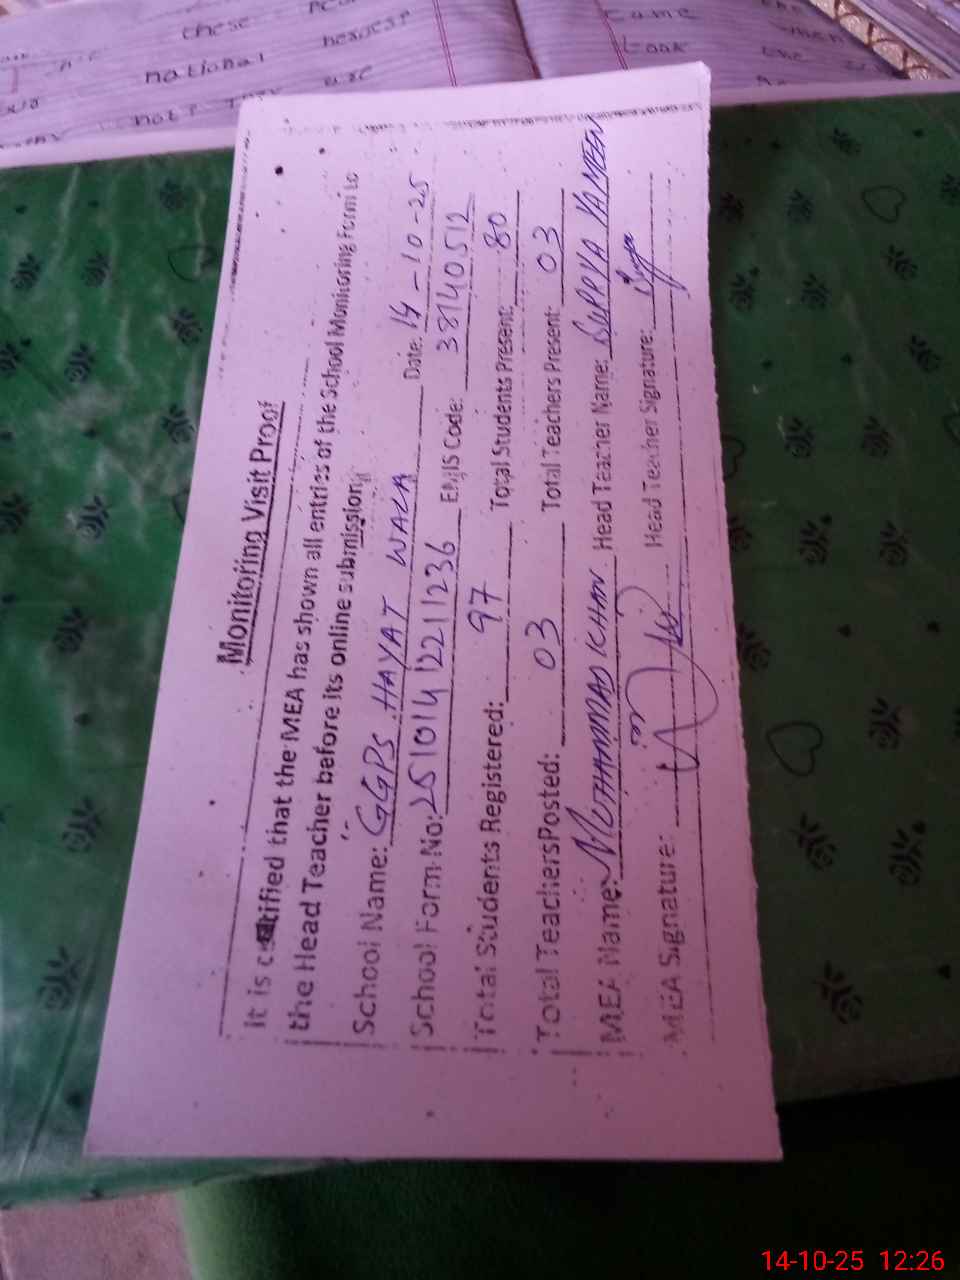 these
national heroese
not they are
came
Look the
Monitoring Visit Proof
It is certified that the MEA has shown all entries of the School Monitoring Form to
the Head Teacher before its online submission.
School Name: GGPS HAYAT WALA Date: 14-10-25
School Form No: 251014122 11236 EMIS Code: 38140512
Total Students Registered: 97 Total Students Present: 80
Total Teachers Posted: 03 Total Teachers Present: 03
MEA Name: MUHAMMAD KHAN Head Teacher Name: SURRYA YAMEEN
MEA Signature: Head Teacher Signature:
14-10-25 12:26